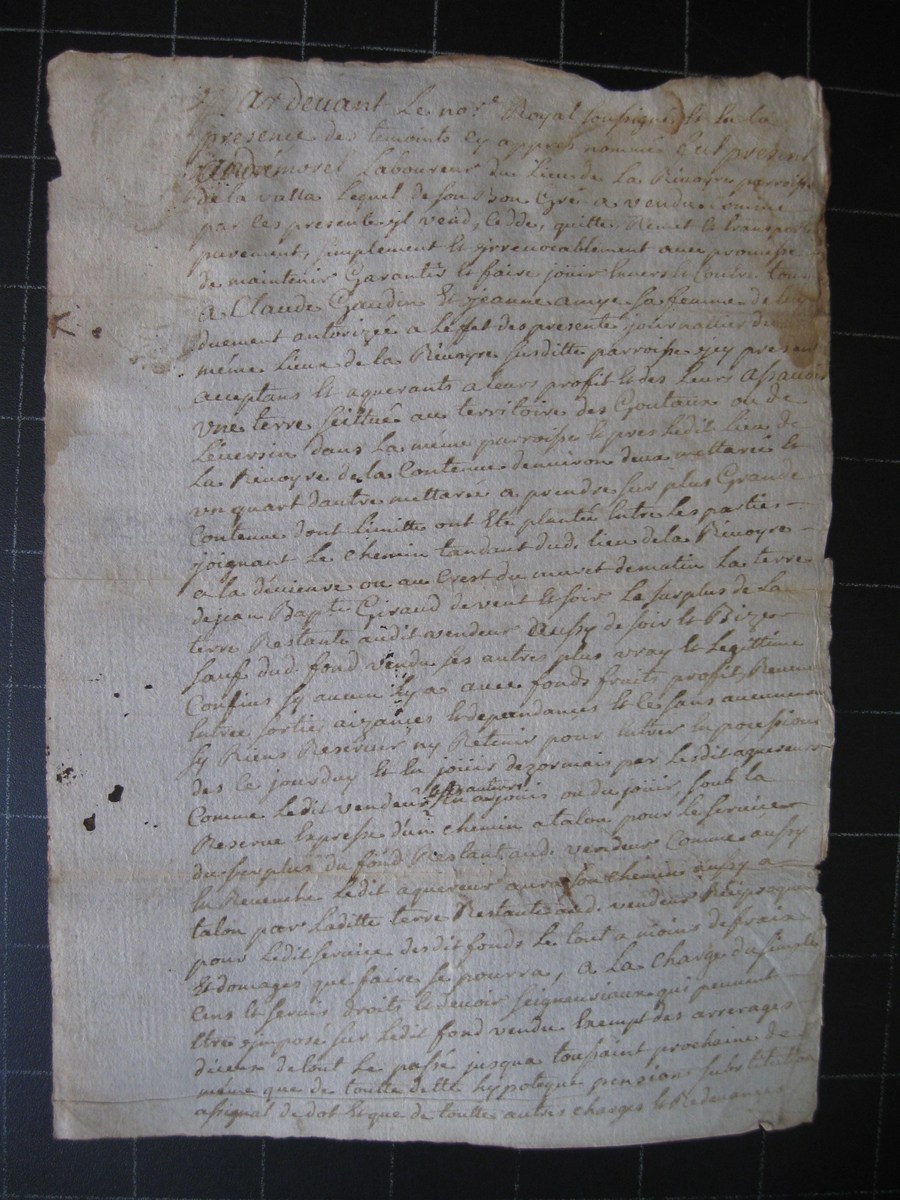 Pardevant Le no.re Royal soussigné Et En la
presence des temoints cy appres nommés Est present
morel Laboureur du Lieu de La Rivoyre parroisse
de la valla Lequel de son Bon gré a vendu comme
par ces presente jl vend, cedde, quitte Remet Et transporte
purement, simplement Et jrrevocablement avec promesse
de maintenir Garantir Et faire jouir Envers Et Contre tous
a Claude Gaudin Et jeanne amye sa femme de luy
duement autorizée a Leffet des presente journallier du
même Lieu de la Rivoyre susditte parroisse jcy present
acceptans Et aquerants a leurs profit Et des Leurs assavoir
vne terre scittué au territoire des Goutaux ou de
Leversin dans La même parroisse Et pres Ledit Lieu de
La Rivoyre de la Contenue denviron deux mettarée Et
un quart dautre mettarée a prendre sur plus Grande
Contenue dont Limitte ont Eté plantée Entre Les parties
joignant Le chemin tandant dud. lieu de la Rivoyre
a la ou au Crest du muret de matin La terre
de jean Bapte Giraud de vent Et soir Le surplus de La
terre Restante audit vendeur aussy de soir Et Bize
sauf dud. fond vendu ses autres plus vray Et Legittime
Confins sy aucun jl y a avec fonds fruits profit Revenu
Entrée sorties aizances Et dependances Et ce sans aucunement
sy Riens Reserver ny Retenir pour Entrer En pocession
des ce jourduy Et En jouir dezormais par Lesdit aquereurs
Comme Ledit vendeur & ses autheurs En a jouis ou du jouir, soub la
Reserve Expresse d'un chemin a talon pour Le service
du surplus du fond Restant aud. vendeur Comme aussy
En Revenche Ledit aquereur aura son chemin aussy a
talon par Laditte terre Restante aud. vendeur Reciproquement
pour Ledit service desdit fonds Le tout a moins de fraix
Et domages que faire se pourra, a La Charge du simple
cens Et servis droits Et devoir seigneuriaux qui peuvent
Etre jmposé sur Ledit fond vendu Exempt des arrerages
diceux de tout Le passé jusqua toussaint prochaine de
même que de toutte dette hypoteque pensions substitution
assignal de dot Et que de toutte autres charges Et Redevances